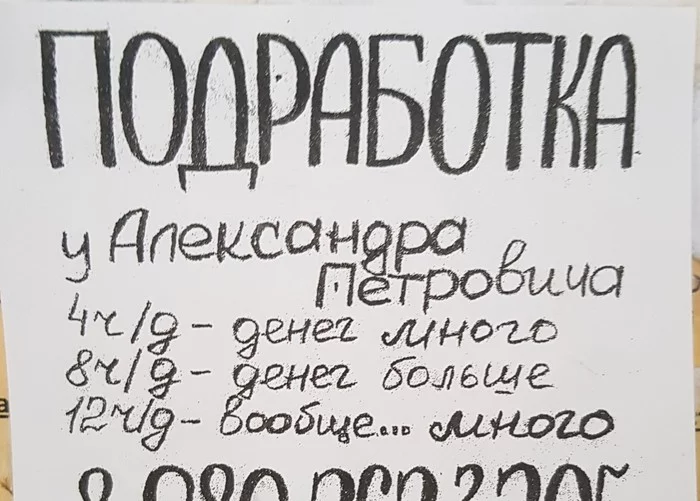 ПОДРАБОТКА
у Александра
Петровича
4ч/д - денег много
8ч/д - денег больше
12ч/д - вообще... много